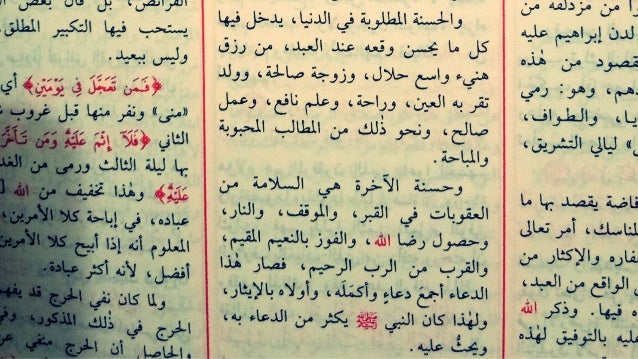 من مزدلفة من
لدن إبراهيم عليه
من هٰذه
وهو: رمي
والطواف،
ليالي التشريق،
يقصد بها ما
أمر تعالى
والإكثار من
الواقع من العبد،
فيها. وذكر الله
بالتوفيق لهٰذه
والحسنة المطلوبة في الدنيا، يدخل فيها
كل ما يحسن وقعه عند العبد، من رزق
هنيء واسع حلال، وزوجة صالحة، وولد
تقر به العين، وراحة، وعلم نافع، وعمل
صالح، ونحو ذٰلك من المطالب المحبوبة
والمباحة.
وحسنة الآخرة هي السلامة من
العقوبات في القبر، والموقف، والنار،
وحصول رضا الله، والفوز بالنعيم المقيم،
والقرب من الرب الرحيم، فصار هٰذا
الدعاء أجمعَ دعاءٍ وأكمَلَه، وأولاه بالإيثار،
ولهٰذا كان النبي ﷺ يكثر من الدعاء به،
ويحثُّ عليه.
الفرائض، بل قال بعض
يستحب فيها التكبير المطلق
وليس ببعيد.
﴿فَمَن تَعَجَّلَ فِى يَوْمَيْنِ﴾ أي
«منى» ونفر منها قبل غروب
الثاني ﴿فَلَآ إِثْمَ عَلَيْهِ وَمَن تَأَخَّرَ
بها ليلة الثالث ورمى من الغد
عَلَيْهِ﴾ وهٰذا تخفيف من الله
عباده، في إباحة كلا الأمرين،
المعلوم أنه إذا أبيح كلا الأمرين
أفضل، لأنه أكثر عبادة.
ولما كان نفي الحرج قد
الحرج في ذٰلك المذكور،
والحاصل أن الحرج منفي